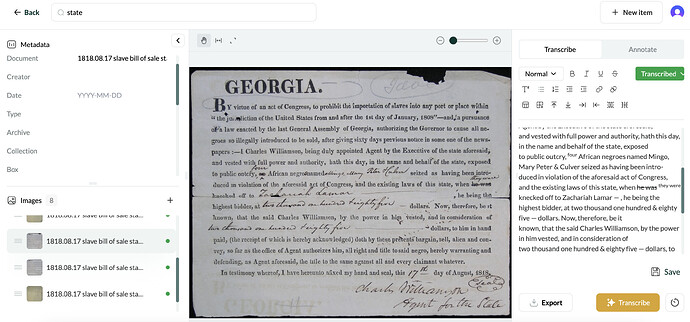 Back
state
New item
Metadata
Document
1818.08.17 slave bill of sale st
Creator
Date
YYYY-MM-DD
Type
Archive
Collection
Box
Images 8
1818.08.17 slave bill of sale sta...
1818.08.17 slave bill of sale sta...
1818.08.17 slave bill of sale sta...
GEORGIA.
BY virtue of an act of Congress, to prohibit the importation of slaves into any port or place within
"the jurisdiction of the United States from and after the 1st day of January, 1808"—and, in pursuance
of a law enacted by the last General Assembly of Georgia, authorizing the Governor to cause all ne-
groes so illegally introduced to be sold, after giving sixty days previous notice in some one of the news-
papers—I Charles Williamson, being duly appointed Agent by the Executive of the state aforesaid,
and vested with full power and authority, hath this day, in the name and behalf of the state, exposed
to public outcry, four African negroes named Mingo, Mary Peter & Culver seized as having been intro-
duced in violation of the aforesaid act of Congress, and the existing laws of this state, when he was they were
knocked off to Zachariah Lamar — , he being the
highest bidder, at two thousand one hundred & eighty five — dollars. Now, therefore, be it
known, that the said Charles Williamson, by the power in him vested, and in consideration of
two thousand one hundred & eighty five — dollars, to him in hand
paid, (the receipt of which is hereby acknowledged) doth by these presents bargain, sell, alien and con-
vey, so far as the office of Agent authorises him, all right and title to said negro, hereby warranting and
defending, as Agent aforesaid, the title to the same against all and every claimant whatever.
In testimony whereof, I have hereunto affixed my hand and seal, this 17th day of August, 1818.
Charles Williamson (Seal)
Agent for the State
Transcribe
Annotate
Normal
B I U S
Transcribed
and vested with full power and authority, hath this day,
in the name and behalf of the state, exposed
to public outcry, four African negroes named Mingo,
Mary Peter & Culver seized as having been intro-
duced in violation of the aforesaid act of Congress,
and the existing laws of this state, when he was they were
knocked off to Zachariah Lamar — , he being the
highest bidder, at two thousand one hundred & eighty
five — dollars. Now, therefore, be it
known, that the said Charles Williamson, by the power
in him vested, and in consideration of
two thousand one hundred & eighty five — dollars, to
Save
Export
Transcribe